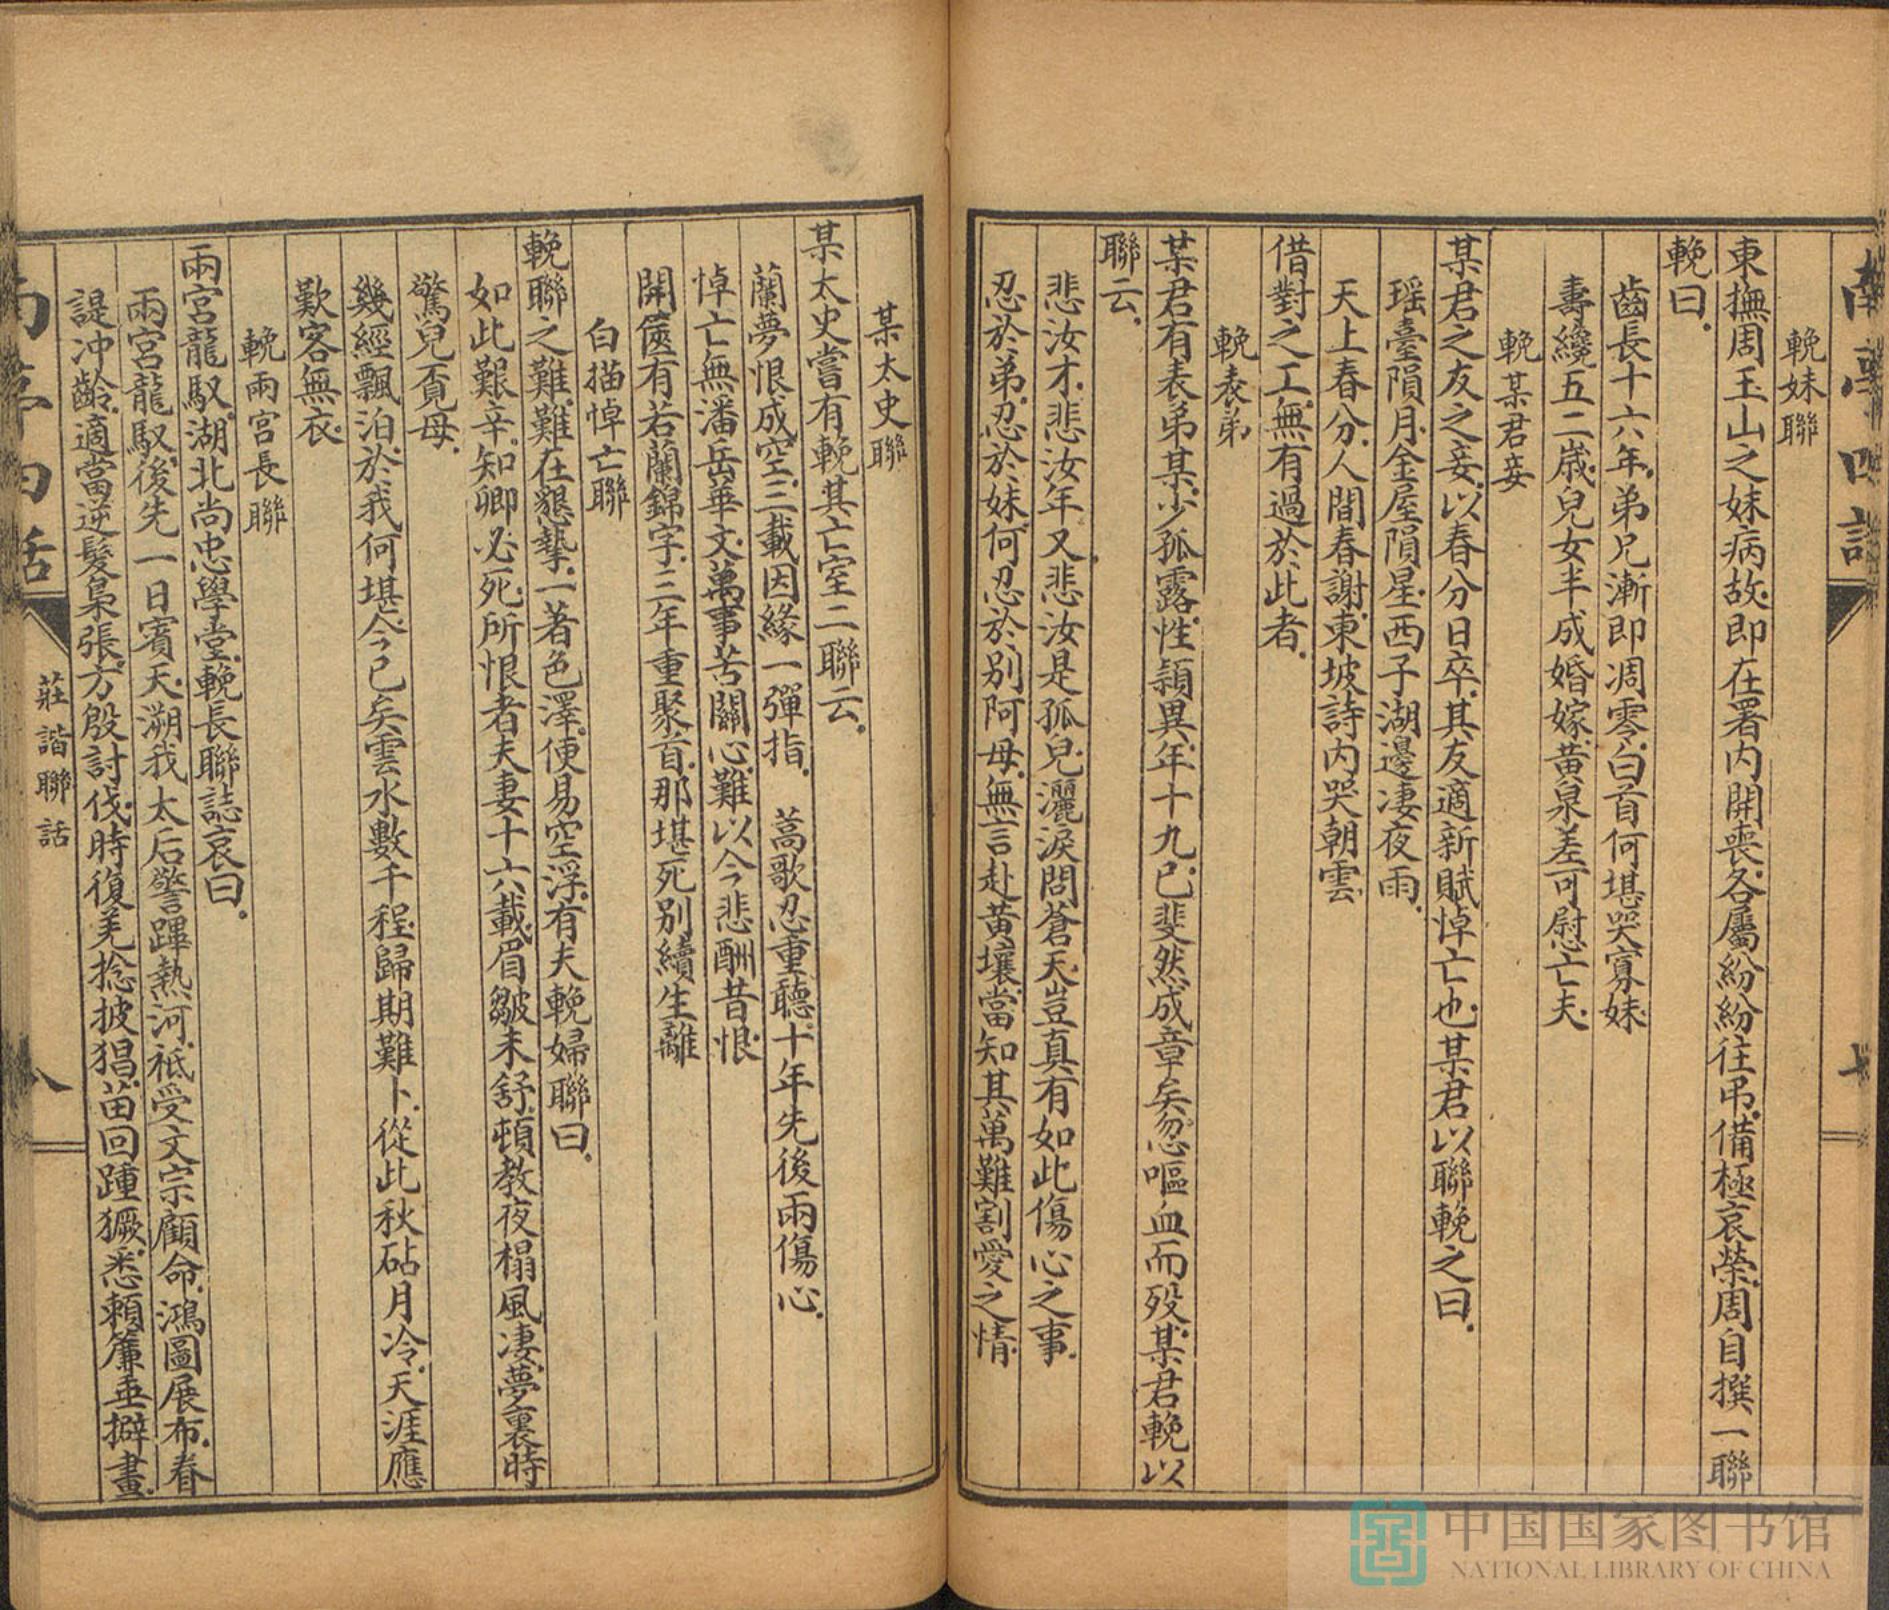 南亭四話
七
輓妹聯
東撫周玉山之妹病故.即在署内開喪.各屬紛紛往弔.備極哀榮.周自撰一聯
輓曰.
齒長十六年.弟兄漸即凋零.白首何堪哭寡妹
壽纔五二歲.兒女半成婚嫁.黄泉差可慰亡夫.
輓某君妾
某君之友之妾.以春分日卒.其友適新賦悼亡也.某君以聯輓之曰.
瑶臺隕月.金屋隕星.西子湖邊凄夜雨.
天上春分.人間春謝.東坡詩内哭朝雲
借對之工.無有過於此者.
輓表弟
某君有表弟某.少孤露.性穎異.年十九.已斐然成章矣.忽嘔血而殁.某君輓以
聯云.
悲汝才.悲汝年.又悲汝是孤兒.灑淚問蒼天.豈真有如此傷心之事.
忍於弟.忍於妹.何忍於别阿母.無言赴黄壤.當知其萬難割愛之情.
某太史聯
某太史嘗有輓其亡室二聯云.
蘭夢恨成空.三載因緣一彈指. 蒿歌忍重聽.十年先後兩傷心.
悼亡無潘岳華文.萬事苦關心.難以今悲酬昔恨.
開篋有若蘭錦字.三年重聚首.那堪死别續生離
白描悼亡聯
輓聯之難.難在懇摯.一著色澤.便易空浮.有夫輓婦聯曰.
如此艱辛.知卿必死.所恨者夫妻十六載.眉皺未舒.頓教夜榻風凄.夢裏時
驚兒覓母.
幾經飄泊.於我何堪.今已矣雲水數千程.歸期難卜.從此秋砧月冷.天涯應
歎客無衣.
輓兩宫長聯
兩宫龍馭.湖北尚忠學堂.輓長聯誌哀曰.
兩宫龍馭.後先一日賓天.溯我太后警蹕熱河.祗受文宗顧命.鴻圖展布.眷
諟沖齡.適當逆髮梟張.方殷討伐.時復羌捻披猖.苗回踵獗.悉賴簾垂擗畫.
南亭四話
莊諧聯話
八
中国国家图书馆
NATIONAL LIBRARY OF CHINA